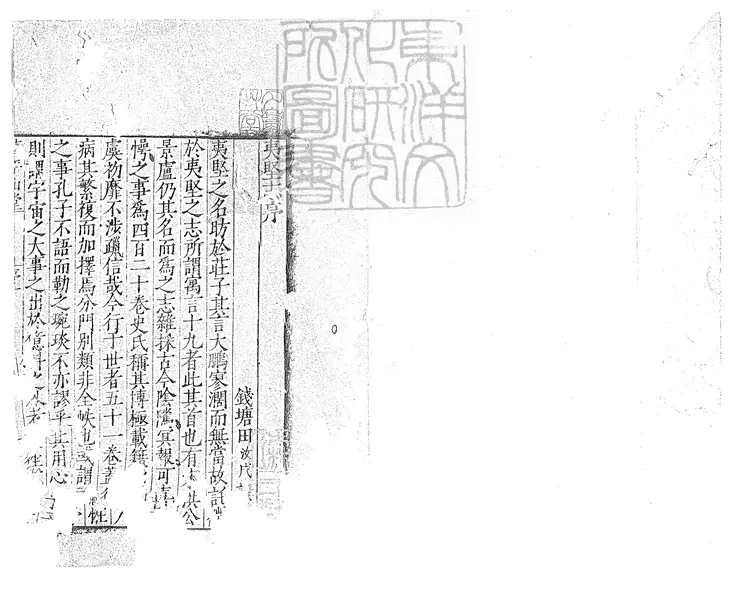 東洋文
化研究
所圖書
夷堅志序
錢塘田汝成
夷堅之名昉於莊子其言大鵬寥濶而無當故託
於夷堅之志所謂寓言十九者此其首也有 洪公
景盧仍其名而爲之志雜採古今陰隲冥報可喜
愕之事爲四百二十卷史氏稱其博極載籍
虞初靡不涉躐信哉今行于世者五十一卷蓋
病其繁復而加擇焉分門別類非全帙也 謂
之事孔子不語而勒之琬琰不亦謬乎其用心
則謂宇宙之大事之出於億料之外者